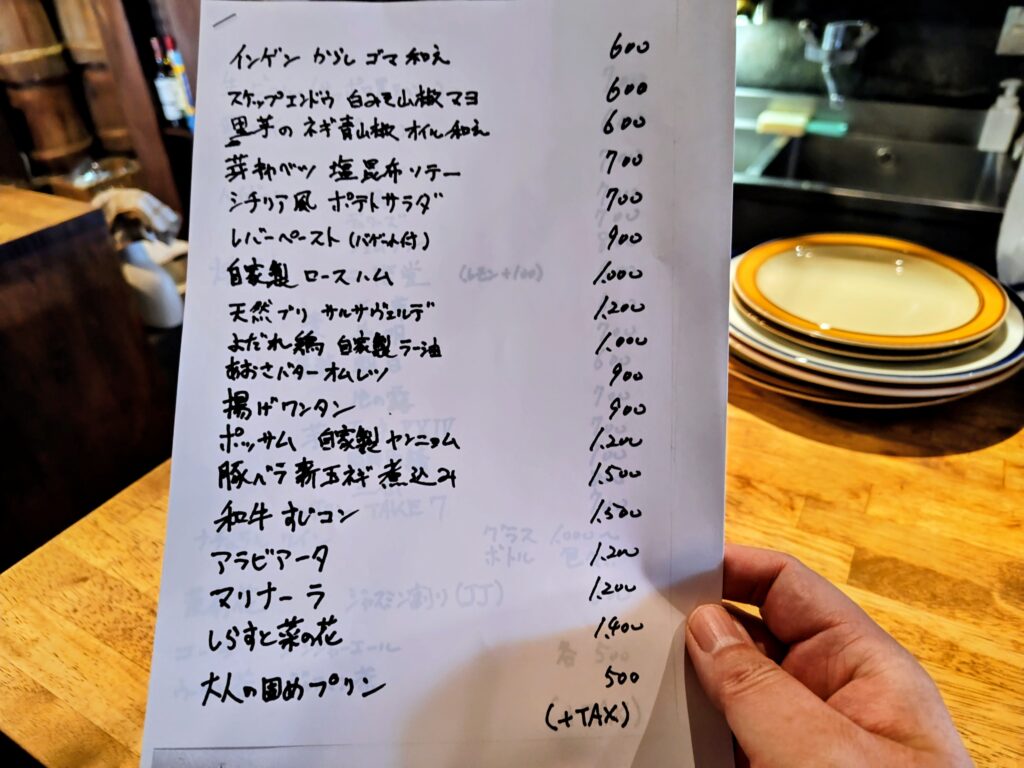 インゲン からし ゴマ和え 600
スナップエンドウ 白みそ山椒マヨ 600
里芋の ネギ青山椒 オイル和え 600
芽キャベツ 塩昆布ソテー 700
シチリア風 ポテトサラダ 700
レバーペースト(バゲット付) 900
自家製 ロースハム 1,000
天然ブリ サルサヴェルデ 1,200
よだれ鶏 自家製ラー油 1,000
あおさバターオムレツ 900
揚げワンタン 900
ポッサム 自家製ヤンニョム 1,200
豚バラ 新玉ネギ 煮込み 1,500
和牛 すじコン 1,500
アラビアータ 1,200
マリナーラ 1,200
しらすと菜の花 1,400
大人の固めプリン 500
(+TAX)